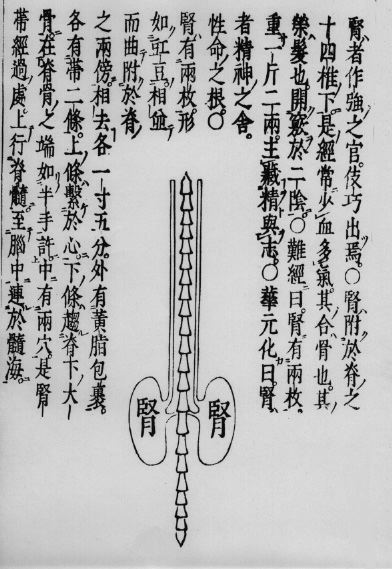 腎者作強之官。伎巧出焉。〇腎附於脊之
十四椎下。是經常少血多氣。其合骨也。其
榮髮也。開竅於二陰。〇難經曰。腎有兩枚。
重一斤二兩。主藏精與志。〇華元化曰。腎
者精神之舍。
性命之根。〇
腎有兩枚。形
如豇豆。相並
而曲附於脊
之兩傍。相去各一寸五分。外有黃脂包裹。
各有帶二條。上條繫於心。下條趨脊下大
骨。在脊骨之端。如半手許。中有兩穴。是腎
帶經過處。上行脊髓。至腦中。連於髓海。
腎
腎